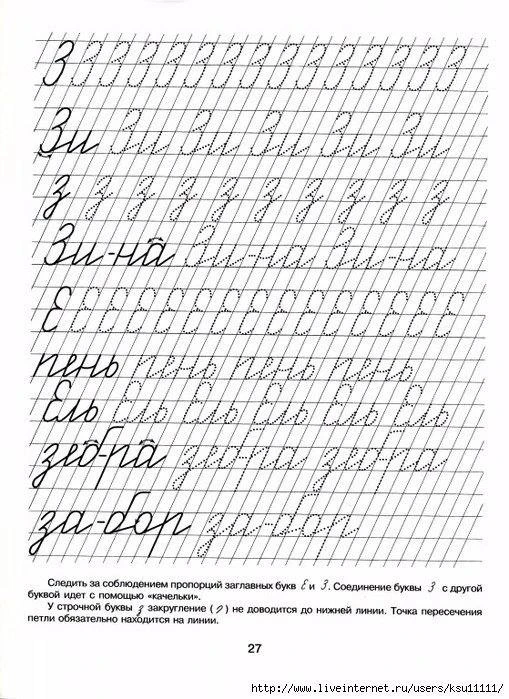 З З З З З З З З З З З З З З З
Зи Зи Зи Зи Зи Зи
з з з з з з з з з з
Зи-на Зи-на Зи-на
Е Е Е Е Е Е Е Е Е Е Е Е Е Е Е
пень пень пень пень
Ель Ель Ель Ель Ель Ель
зебра зебра зебра
за-бор за-бор
Следить за соблюдением пропорций заглавных букв Е и З. Соединение буквы З с другой
буквой идет с помощью «качельки».
У строчной буквы з закругление ( ) не доводится до нижней линии. Точка пересечения
петли обязательно находится на линии.
27
http://www.liveinternet.ru/users/ksu11111/